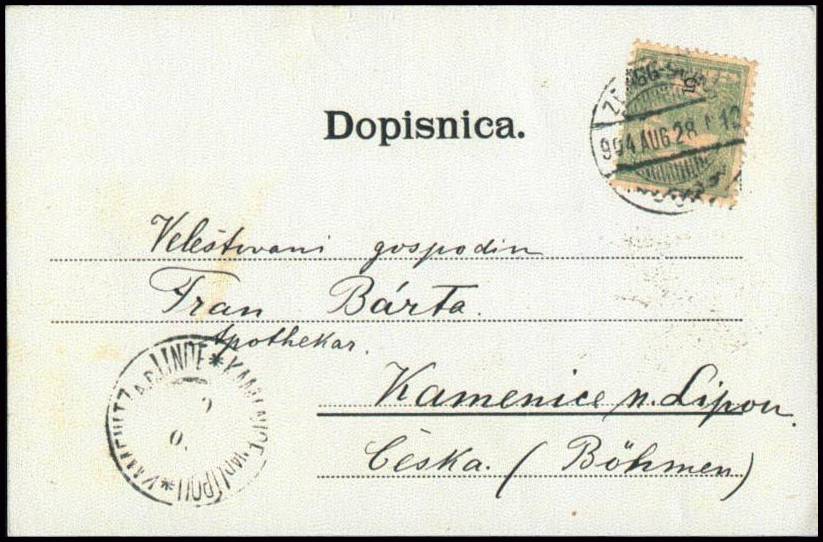 Dopisnica.
904 AUG 28
5
Veleštovani gospodin
Fran Bárta.
Apothekar.
Kamenice n. Lipou.
Česka. (Böhmen)
KAMENITZ A.D. LINDE * KAMENICE n/L LIPOU *